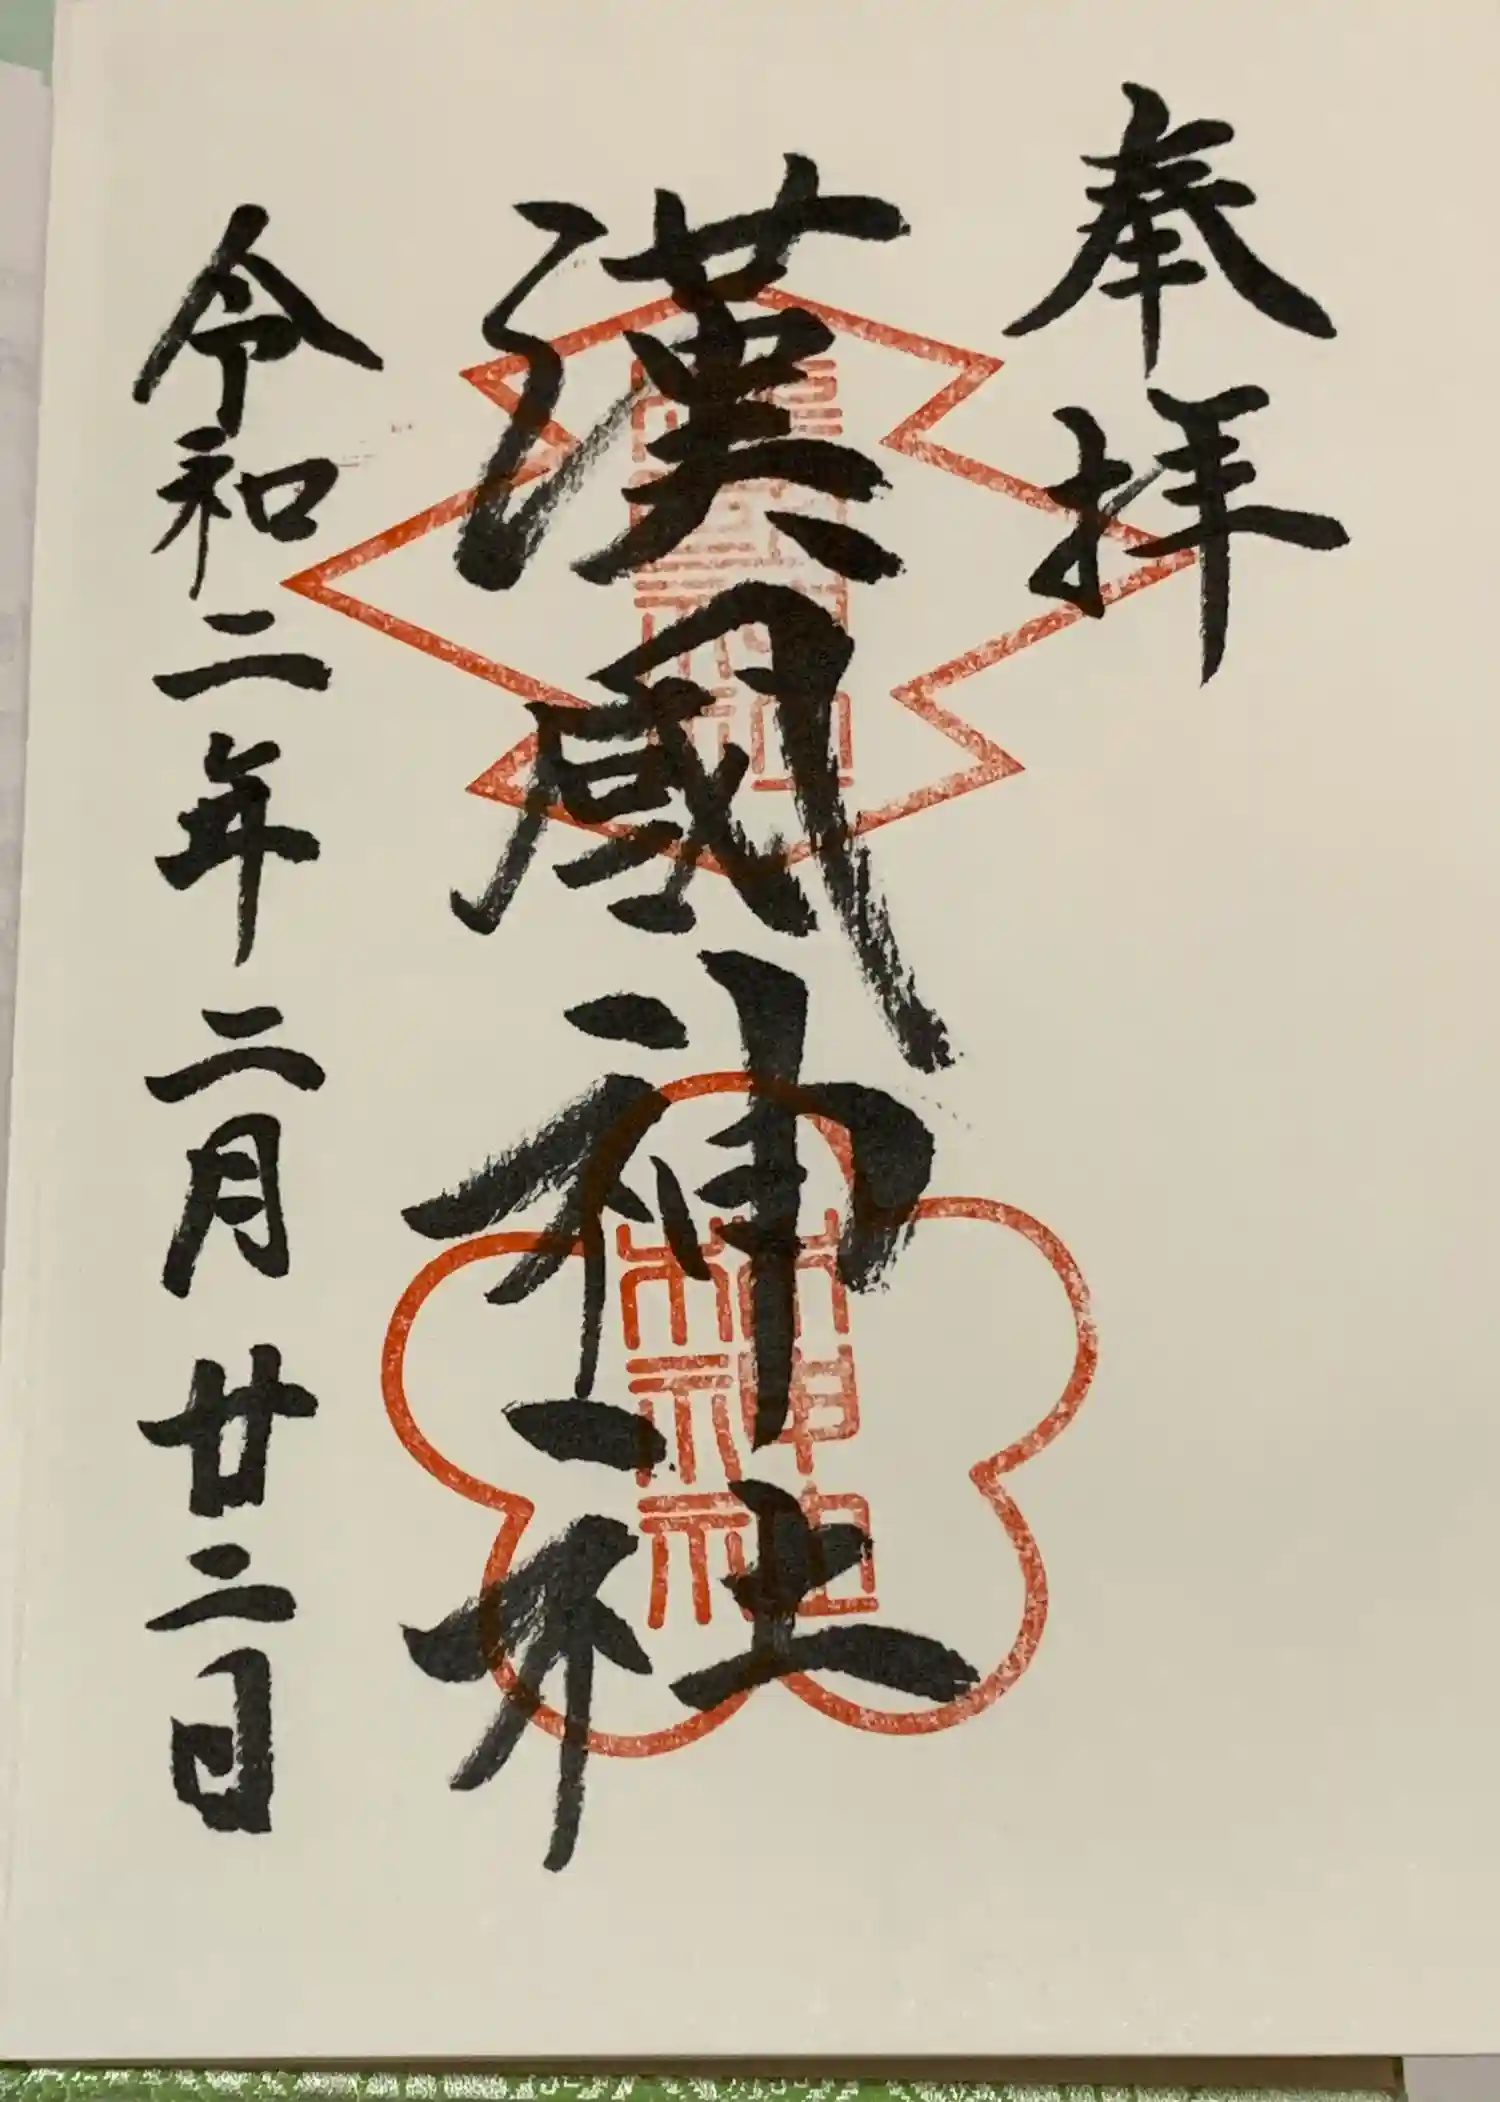 奉拝
漢國神社
令和二年二月廿二日
林神社